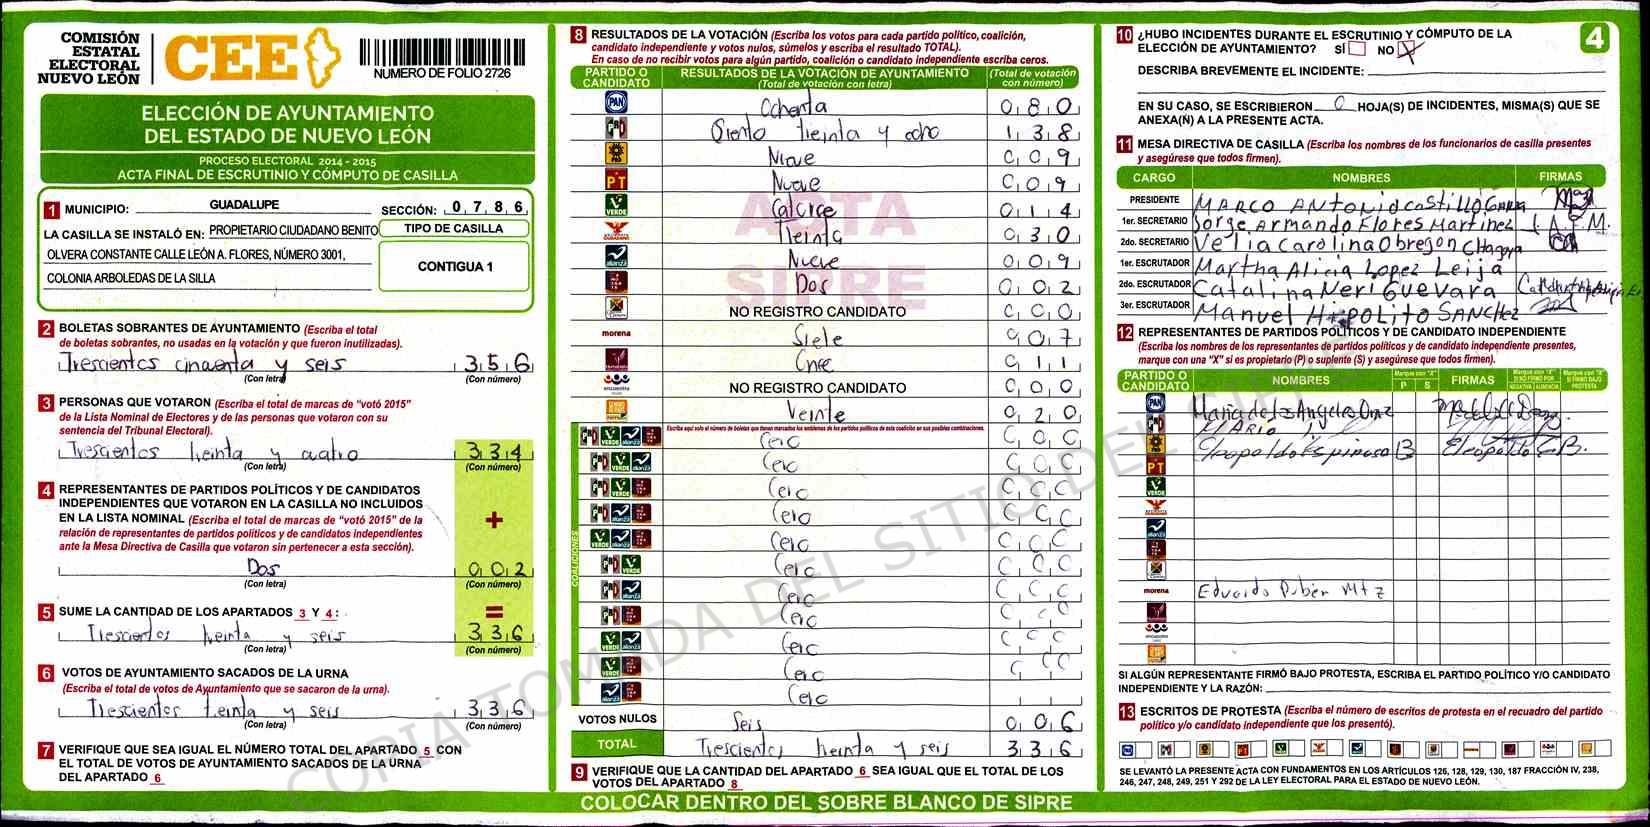 COMISIÓN
ESTATAL
ELECTORAL
NUEVO LEÓN
CEE
NUMERO DE FOLIO 2726
ELECCIÓN DE AYUNTAMIENTO
DEL ESTADO DE NUEVO LEÓN
PROCESO ELECTORAL 2014 - 2015
ACTA FINAL DE ESCRUTINIO Y CÓMPUTO DE CASILLA
1 MUNICIPIO: GUADALUPE SECCIÓN: 0 7 8 6
LA CASILLA SE INSTALÓ EN: PROPIETARIO CIUDADANO BENITO
OLVERA CONSTANTE CALLE LEÓN A. FLORES, NÚMERO 3001,
COLONIA ARBOLEDAS DE LA SILLA
TIPO DE CASILLA
CONTIGUA 1
2 BOLETAS SOBRANTES DE AYUNTAMIENTO (Escriba el total
de boletas sobrantes, no usadas en la votación y que fueron inutilizadas).
Trescientos cincuenta y seis 3 5 6
(Con letra) (Con número)
3 PERSONAS QUE VOTARON (Escriba el total de marcas de “votó 2015”
de la Lista Nominal de Electores y de las personas que votaron con su
sentencia del Tribunal Electoral).
Trescientos treinta y cuatro 3 3 4
(Con letra) (Con número)
4 REPRESENTANTES DE PARTIDOS POLÍTICOS Y DE CANDIDATOS
INDEPENDIENTES QUE VOTARON EN LA CASILLA NO INCLUIDOS
EN LA LISTA NOMINAL (Escriba el total de marcas de “votó 2015” de la
relación de representantes de partidos políticos y de candidatos independientes
ante la Mesa Directiva de Casilla que votaron sin pertenecer a esta sección).
+
Dos 0 0 2
(Con letra) (Con número)
5 SUME LA CANTIDAD DE LOS APARTADOS 3 Y 4 : =
Trescientos treinta y seis 3 3 6
(Con letra) (Con número)
6 VOTOS DE AYUNTAMIENTO SACADOS DE LA URNA
(Escriba el total de votos de Ayuntamiento que se sacaron de la urna).
Trescientos treinta y seis 3 3 6
(Con letra) (Con número)
7 VERIFIQUE QUE SEA IGUAL EL NÚMERO TOTAL DEL APARTADO 5 CON
EL TOTAL DE VOTOS DE AYUNTAMIENTO SACADOS DE LA URNA
DEL APARTADO 6
8 RESULTADOS DE LA VOTACIÓN (Escriba los votos para cada partido político, coalición,
candidato independiente y votos nulos, súmelos y escriba el resultado TOTAL).
En caso de no recibir votos para algún partido, coalición o candidato independiente escriba ceros.
PARTIDO O CANDIDATO
RESULTADOS DE LA VOTACIÓN DE AYUNTAMIENTO
(Total de votación con letra)
(Total de votación con número)
PAN Ochenta 0 8 0
PRD Ciento treinta y ocho 1 3 8
PRD Nueve 0 0 9
PT Nueve 0 0 9
VERDE Catorce 0 1 4
Treinta 0 3 0
alianza Nueve 0 0 9
Dos 0 0 2
NO REGISTRO CANDIDATO 0 0 0
morena Siete 0 0 7
Once 0 1 1
NO REGISTRO CANDIDATO 0 0 0
Veinte 0 2 0
Escriba aquí solo el número de boletas que tienen marcados los emblemas de los partidos políticos de esta coalición en sus posibles combinaciones.
COALICIONES
Cero 0 0 0
Cero 0 0 0
Cero 0 0 0
Cero 0 0 0
Cero 0 0 0
Cero 0 0 0
Cero 0 0 0
Cero 0 0 0
Cero 0 0 0
Cero 0 0 0
Cero
VOTOS NULOS Seis 0 0 6
TOTAL Trescientos treinta y seis 3 3 6
9 VERIFIQUE QUE LA CANTIDAD DEL APARTADO 6 SEA IGUAL QUE EL TOTAL DE LOS
VOTOS DEL APARTADO 8
ACTA
SIPRE
COLOCAR DENTRO DEL SOBRE BLANCO DE SIPRE
COPIA TOMADA DEL SITIO DEL
4
10 ¿HUBO INCIDENTES DURANTE EL ESCRUTINIO Y CÓMPUTO DE LA
ELECCIÓN DE AYUNTAMIENTO? SÍ NO X
DESCRIBA BREVEMENTE EL INCIDENTE:
EN SU CASO, SE ESCRIBIERON 0 HOJA(S) DE INCIDENTES, MISMA(S) QUE SE
ANEXA(N) A LA PRESENTE ACTA.
11 MESA DIRECTIVA DE CASILLA (Escriba los nombres de los funcionarios de casilla presentes
y asegúrese que todos firmen).
CARGO NOMBRES FIRMAS
PRESIDENTE MARCO ANTONIO castillo
1er. SECRETARIO Jorge Armando Flores Martinez J. A. F. M.
2do. SECRETARIO Velia Carolina Obregon
1er. ESCRUTADOR Martha Alicia Lopez Leija
2do. ESCRUTADOR Catalina Neri Guevara
3er. ESCRUTADOR Manuel HIPOLITO SANCHEZ
12 REPRESENTANTES DE PARTIDOS POLÍTICOS Y DE CANDIDATO INDEPENDIENTE
(Escriba los nombres de los representantes de partidos políticos y de candidato independiente presentes,
marque con una “X” si es propietario (P) o suplente (S) y asegúrese que todos firmen).
PARTIDO O CANDIDATO
NOMBRES
Marque con “X”
P S
FIRMAS
Marque con “X” SI NO FIRMÓ POR NEGATIVA / AUSENCIA
Marque con “X” SI FIRMÓ BAJO PROTESTA
PAN Maria de los Angeles
MARIO
Leopoldo Espinosa B Leopoldo E B.
PT
VERDE
morena Eduardo Ruben Mtz
SI ALGÚN REPRESENTANTE FIRMÓ BAJO PROTESTA, ESCRIBA EL PARTIDO POLÍTICO Y/O CANDIDATO
INDEPENDIENTE Y LA RAZÓN:
13 ESCRITOS DE PROTESTA (Escriba el número de escritos de protesta en el recuadro del partido
político y/o candidato independiente que los presentó).
SE LEVANTÓ LA PRESENTE ACTA CON FUNDAMENTOS EN LOS ARTÍCULOS 126, 128, 129, 130, 187 FRACCIÓN IV, 238,
246, 247, 248, 249, 251 Y 292 DE LA LEY ELECTORAL PARA EL ESTADO DE NUEVO LEÓN.